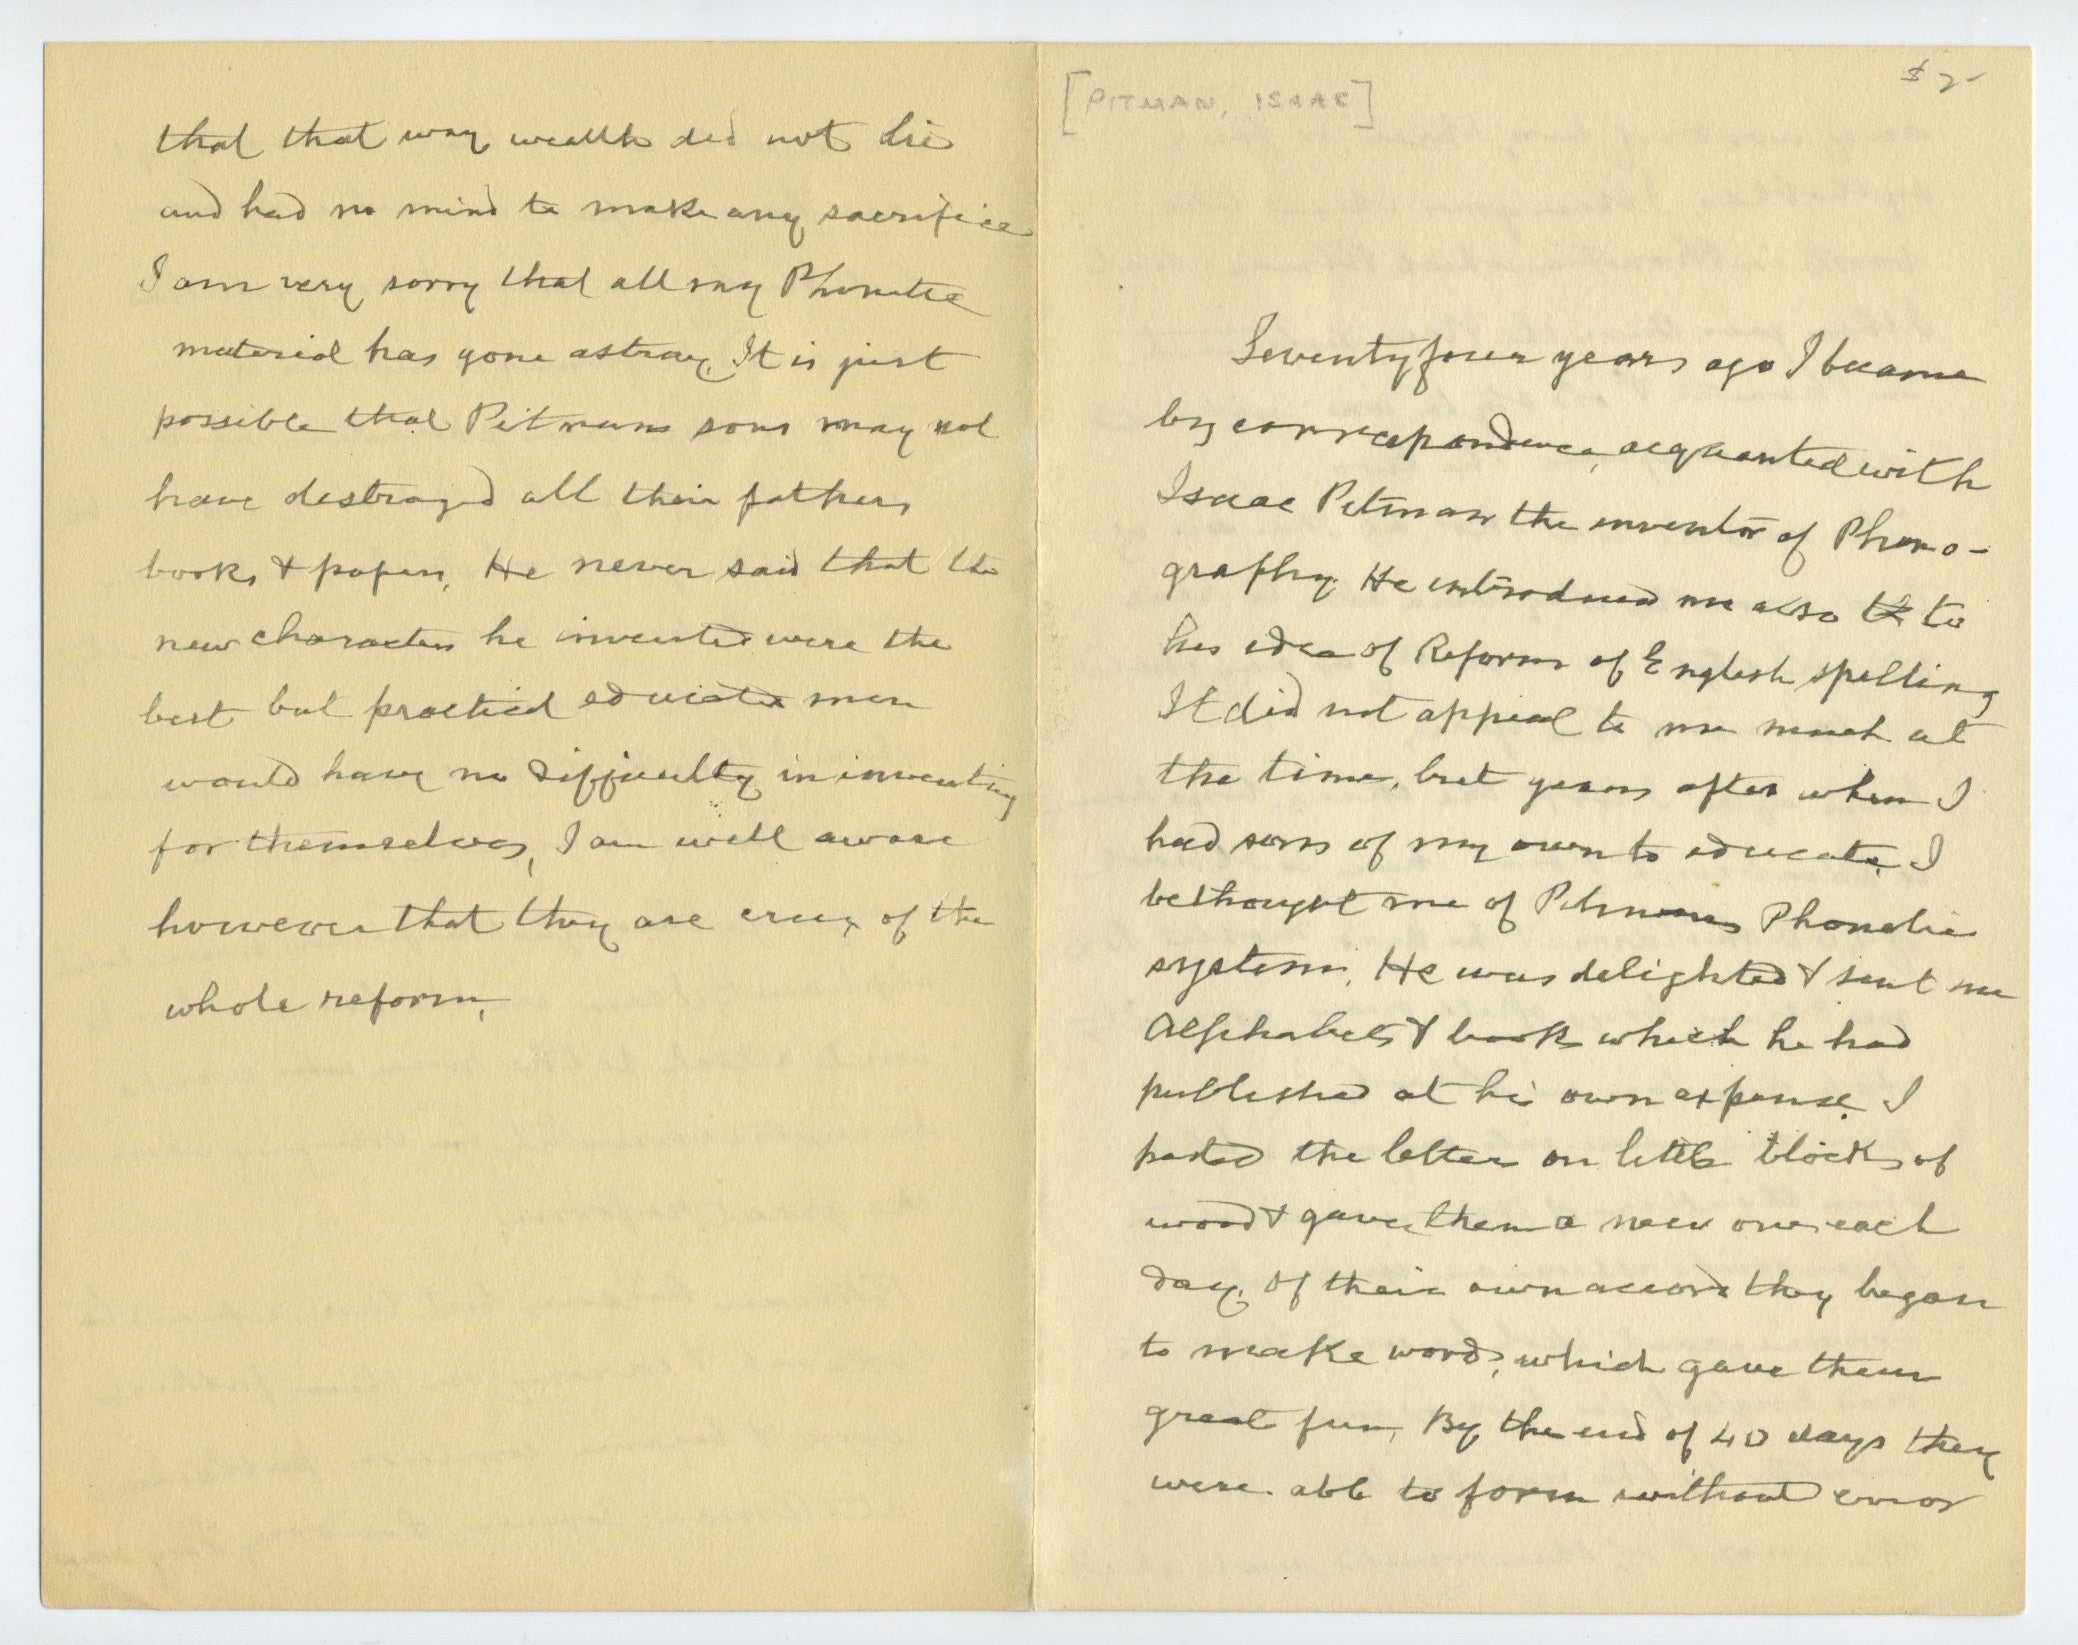 [PITMAN, ISAAC]
$2-
Seventyfour years ago I became
by correspondence, acquainted with
Isaac Pitman the inventor of Phono-
graphy. He introduced me also to
his idea of Reform of English spelling
It did not appeal to me much at
the time, but years after when I
had sons of my own to educate, I
bethought me of Pitmans Phonetic
system. He was delighted & sent me
Alphabets & books which he had
published at his own expense. I
pasted the letters on little blocks of
wood & gave them a new one each
day. Of their own accord they began
to make words, which gave them
great fun. By the end of 40 days they
were able to form without error
that that way wealth did not lie
and had no mind to make any sacrifice
I am very sorry that all my Phonetic
material has gone astray. It is just
possible that Pitmans sons may not
have destroyed all their fathers
books & papers. He never said that the
new characters he invented were the
best but practical educated men
would have no difficulty in inventing
for themselves, I am well aware
however that they are crux of the
whole reform.